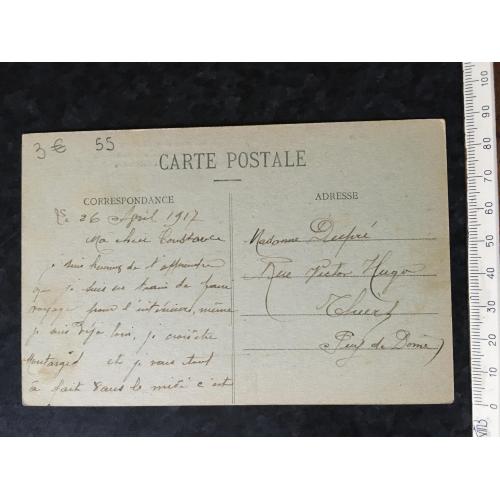 3 € 55
CARTE POSTALE
CORRESPONDANCE
Le 26 April 1917
Ma chère Constance
je suis heureux de t'apprendre
que je suis en train de faire
voyage pour l'intérieur, même
je suis déjà loin, je
Montargis et je vais tout
à fait dans le midi c'est
ADRESSE
Madame Dupré
Rue Victor Hugo
Thiers
Puy de Dôme
100
90
80
70
60
50
40
30
20
10
0